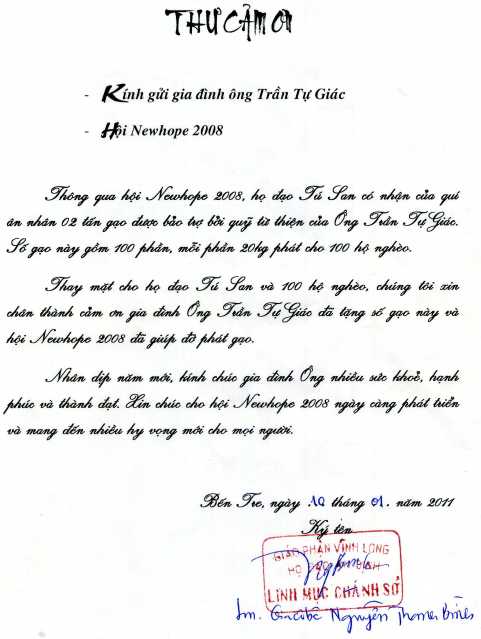 THƯ CẢM ƠN
- Kính gửi gia đình ông Trần Tự Giác
- Hội Newhope 2008
Thông qua hội Newhope 2008, họ đạo Tú San có nhận của quí
ân nhân 02 tấn gạo được bảo trợ bởi quỹ từ thiện của Ông Trần Tự Giác.
Số gạo này gồm 100 phần, mỗi phần 20kg phát cho 100 hộ nghèo.
Thay mặt cho họ đạo Tú San và 100 hộ nghèo, chúng tôi xin
chân thành cảm ơn gia đình Ông Trần Tự Giác đã tặng số gạo này và
hội Newhope 2008 đã giúp đỡ phát gạo.
Nhân dịp năm mới, kính chúc gia đình Ông nhiều sức khoẻ, hạnh
phúc và thành đạt. Xin chúc cho hội Newhope 2008 ngày càng phát triển
và mang đến nhiều hy vọng mới cho mọi người.
Bến Tre, ngày 10 tháng 01. năm 2011
Ký tên
GIÁO PHẬN VĨNH LONG
HỌ
LINH MỤC CHÁNH SỞ
Lm. Nguyễn